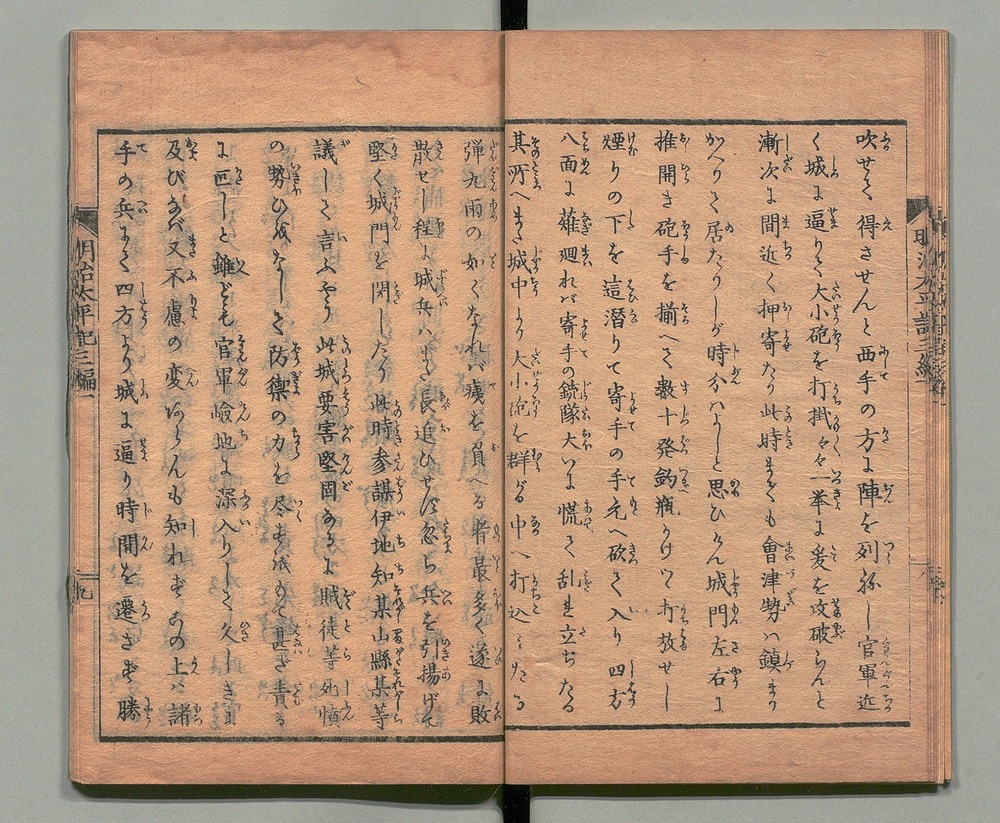 吹せて得させんと西手の方に陣を列ねし官軍近
く城に逼りて大小砲を打掛々々一挙に爰を攻破らんと
漸次に間近く押寄たり此時までも會津勢ハ鎮まり
かへりて居たりしが時分ハよしと思ひけん城門左右に
推開き砲手を揃へて数十発釣瓶かけつゝ打放せし
煙りの下を這潜りて寄手の手元へ砍て入り四方
八面に薙廻れバ寄手の銃隊大いに慌て乱れ立ちたる
其所へまた城中より大小砲を群がる中へ打込こみたる
弾丸雨の如くなれバ痍を負へる者最多く遂に敗
散せし程に城兵ハまた長追ひせず忽ち兵を引揚げて
堅く城門を閉したり此時参謀伊地知某山縣某等
議して言ふやう此城要害堅固なるに賊徒等死憤
の勢ひをなして防禦の力を尽すをもて甚だ責る
に可しと雖ども官軍嶮地に深入りして久しき
及びなバ又不慮の変あらんも知れずこの上ハ諸
手の兵よく四方より城に逼り時間を遷さず勝
明治太平記三編一
九